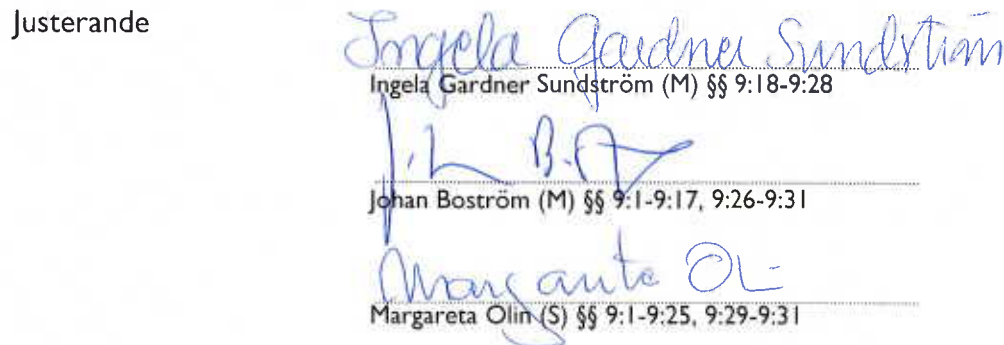 Justerande
Ingela Gardner Sundström
Ingela Gardner Sundström (M) §§ 9:18-9:28
Johan Boström (M) §§ 9:1-9:17, 9:26-9:31
Margareta Olin
Margareta Olin (S) §§ 9:1-9:25, 9:29-9:31